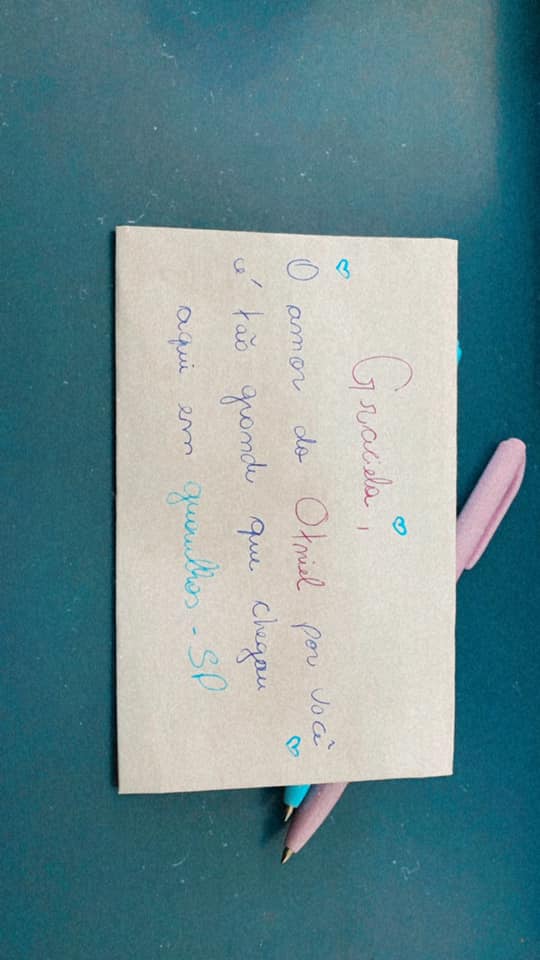 Graciela,
O amor do Otniel por você
é tão grande que chegou
aqui em guarulhos - SP